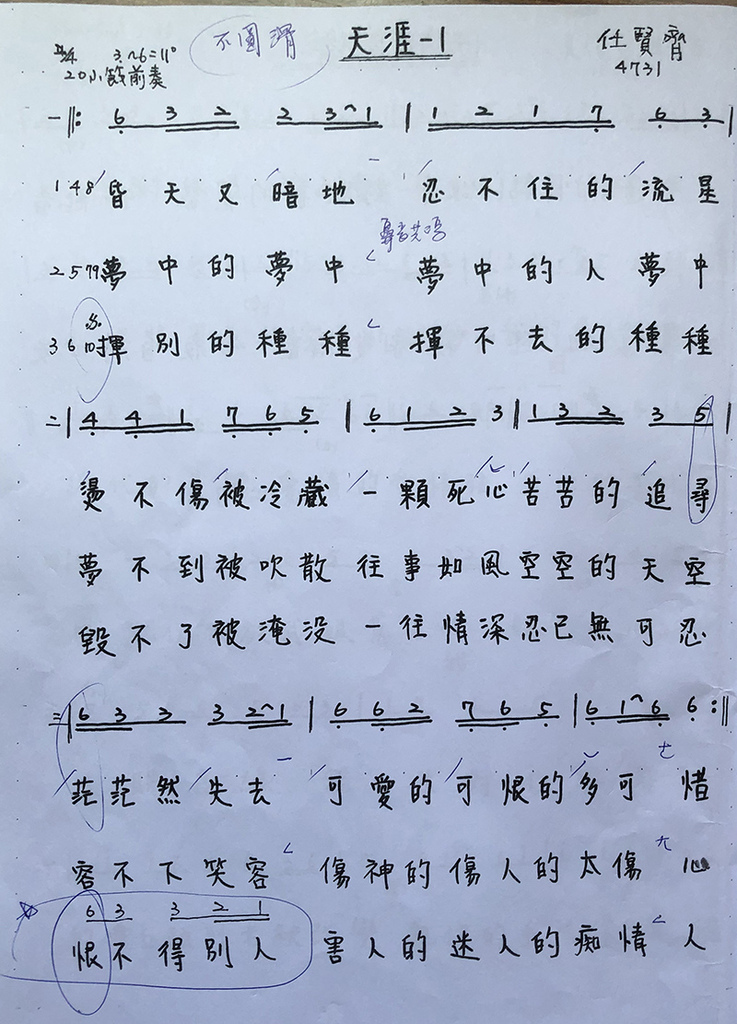 不圓滑 天涯-1 任賢齊
3~6=11°
20小節前奏 4731
一 ‖: 6 3 2 2 3 1 | 1 2 1 7 6 3 |
1 4 8 昏天又暗地 忍不住的流星
2 5 7 9 夢中的夢中 夢中的人夢中
3 6 10 揮別的種種 揮不去的種種
二 | 4 4 1 7 6 5 | 6 1 2 3 | 1 3 2 3 5 |
燙不傷被冷藏 一顆死心苦苦的追尋
夢不到被吹散 往事如風空空的天空
毀不了被淹没 一往情深忍已無可忍
三 | 6 3 3 3 2 1 | 6 6 2 7 6 5 | 6 1 6 6 :‖
茫茫然失去 可愛的可恨的多可惜
容不下笑容 傷神的傷人的太傷心
6 3 3 2 1
恨不得別人 害人的迷人的痴情人